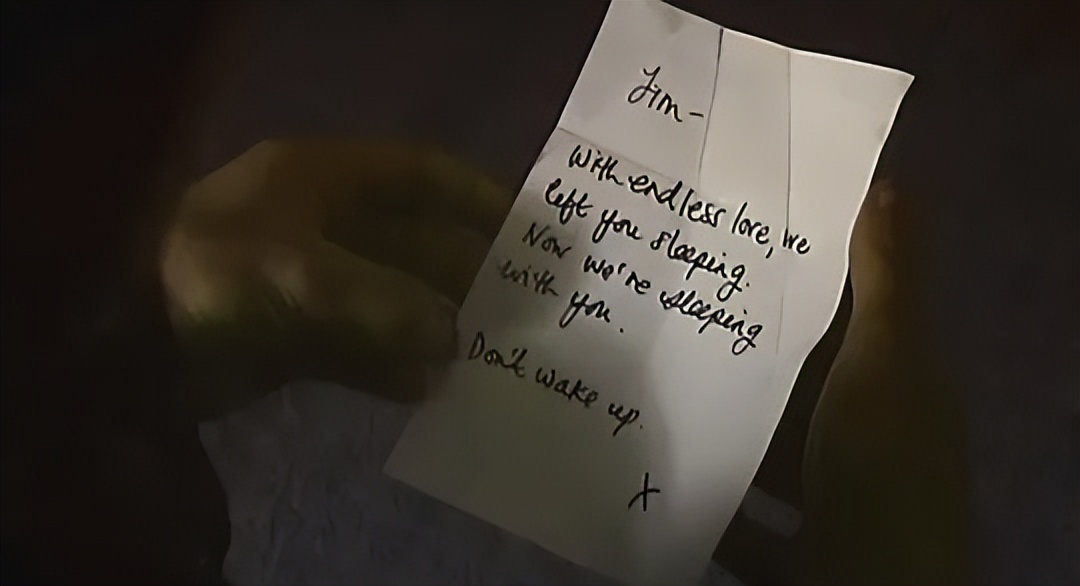 Jim-
With endless love, we
left you sleeping.
Now we're sleeping
with you.
Don't wake up.
X